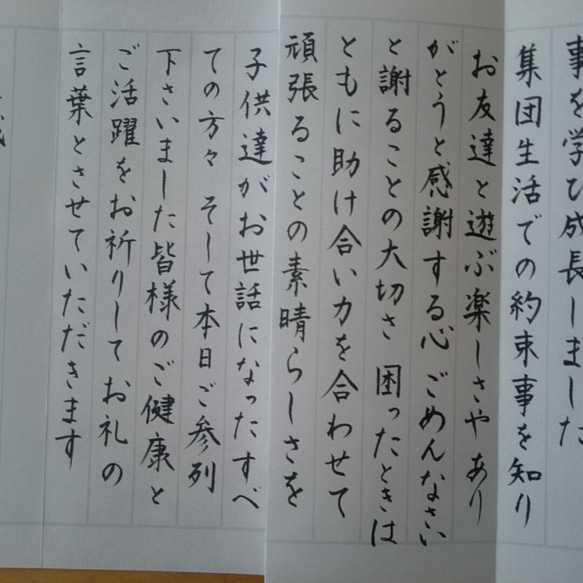 事を学び成長しました
集団生活での約束事を知り
お友達と遊ぶ楽しさや あり
がとうと感謝する心 ごめんなさい
と謝ることの大切さ 困ったときは
ともに助け合い力を合わせて
頑張ることの素晴らしさを
子供達がお世話になったすべ
ての方々 そして本日ご参列
下さいました皆様のご健康と
ご活躍をお祈りして お礼の
言葉とさせていただきます